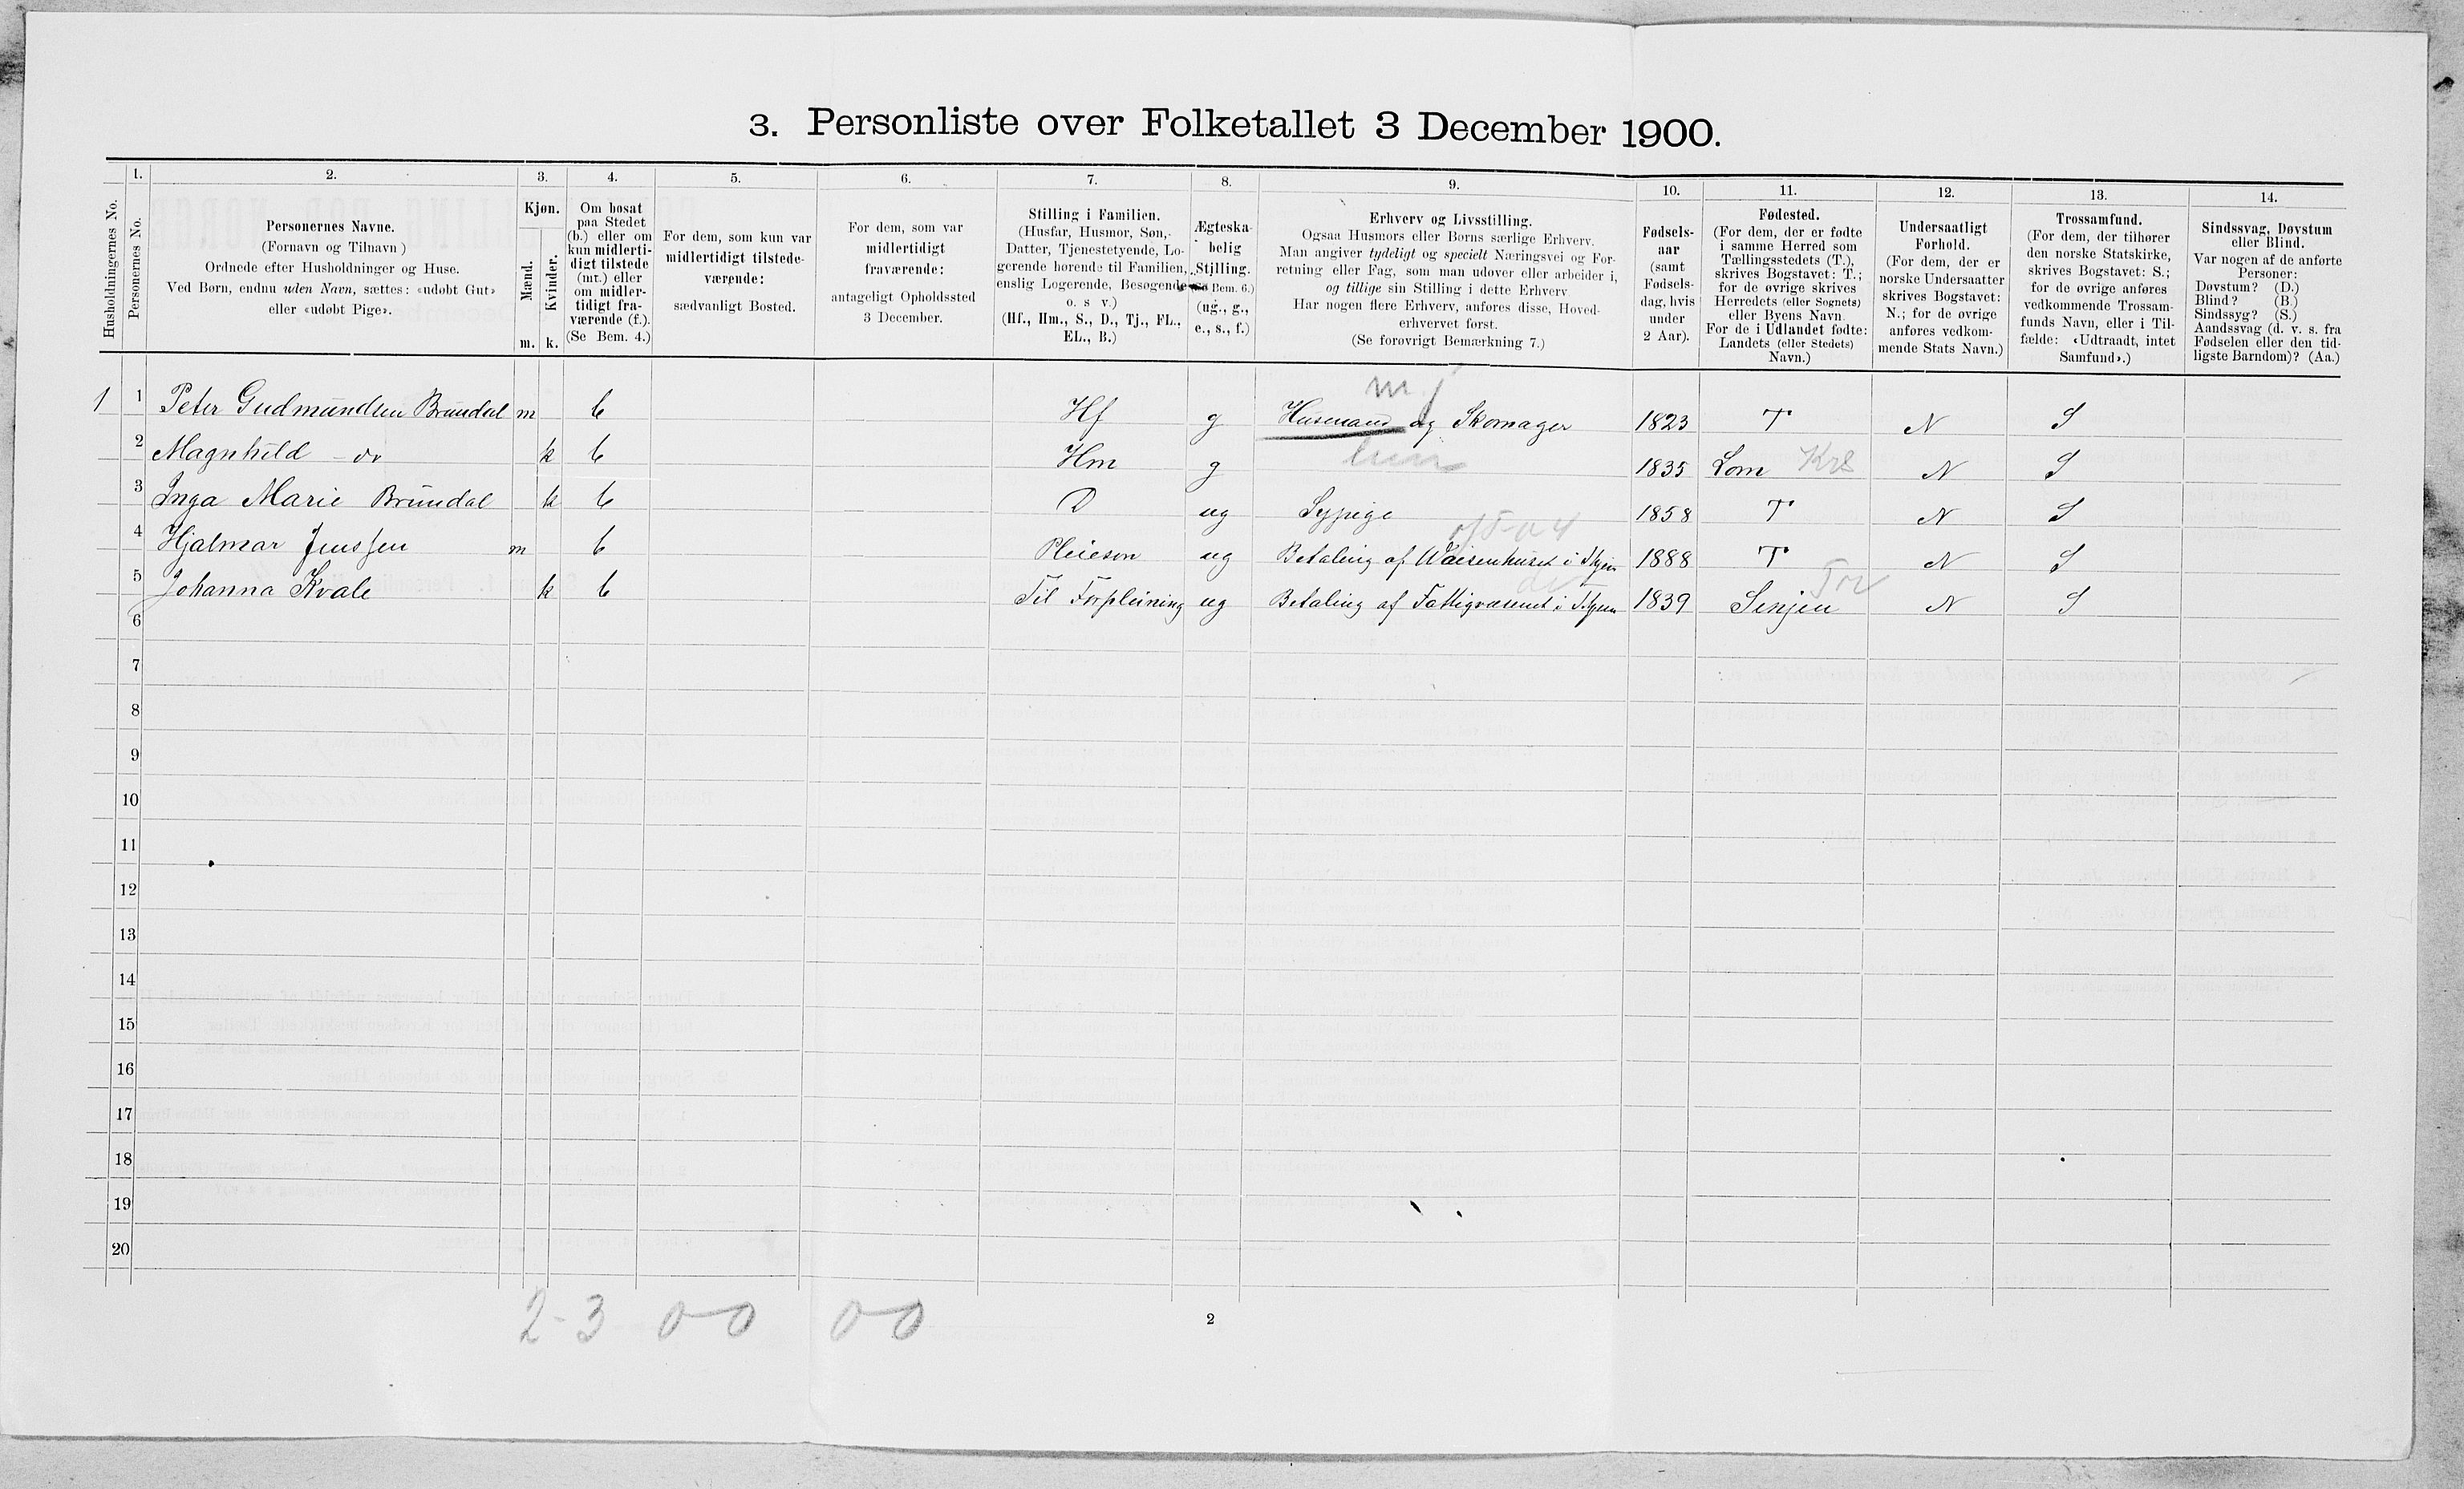 3. Personliste over Folketallet 3 December 1900.
Husholdningernes No.
1.
Personernes No.
2.
Personernes Navne.
(Fornavn og Tilnavn)
Ordnede efter Husholdninger og Huse.
Ved Børn, endnu uden Navn, sættes: «udøbt Gut»
eller «udøbt Pige».
3.
Kjøn.
Mænd.
Kvinder.
m. k.
4.
Om bosat
paa Stedet
(b.) eller om
kun midlerti-
digt tilstede
(mt.) eller
om midler-
tidigt fra-
værende (f.).
(Se Bem. 4.)
5.
For dem, som kun var
midlertidigt tilstede-
værende:
sædvanligt Bosted.
6.
For dem, som var
midlertidigt
fraværende:
antageligt Opholdssted
3 December.
7.
Stilling i Familien.
(Husfar, Husmor, Søn,
Datter, Tjenestetyende, Lo-
gerende hørende til Familien,
enslig Logerende, Besøgende
o. s v.)
(Hf., Hm., S., D., Tj., FL.,
EL., B.)
8.
Ægteska-
belig
Stilling.
Bem. 6.)
(ug., g.,
e., s., f.)
9.
Erhverv og Livsstilling.
Ogsaa Husmors eller Børns særlige Erhverv.
Man angiver tydeligt og specielt Næringsvei og For-
retning eller Fag, som man udøver eller arbeider i,
og tillige sin Stilling i dette Erhverv
Har nogen flere Erhverv, anføres disse, Hoved-
erhvervet først.
(Se forøvrigt Bemærkning 7.)
10.
Fødsels-
aar
(samt
Fødsels-
dag, hvis
under
2 Aar).
11.
Fødested.
(For dem, der er fødte
i samme Herred som
Tællingsstedets (T.),
skrives Bogstavet: T.;
for de øvrige skrives
Herredets (eller Sognets)
eller Byens Navn.
For de i Udlandet fødte:
Landets (eller Stedets)
Navn.)
12.
Undersaatligt
Forhold.
(For dem, der er
norske Undersaatter
skrives Bogstavet:
N.; for de øvrige
anføres vedkom-
mende Stats Navn.)
13.
Trossamfund.
(For dem, der tilhører
den norske Statskirke,
skrives Bogstavet: S.;
for de øvrige anføres
vedkommende Trossam-
funds Navn, eller i Til-
fælde: «Udtraadt, intet
Samfund».)
14.
Sindssvag, Døvstum
eller Blind.
Var nogen af de anførte
Personer:
Døvstum? (D.)
Blind? (B.)
Sindssyg? (S.)
Aandssvag (d. v. s. fra
Fødselen eller den tid-
ligste Barndom)? (Aa.)
mj
1 1 Peter Gudmundsen Brundal m b Hf g Husmand og Skomager 1823 T N S
2 Magnhild do k b Hm g 1835 Lom Krs N S
3 Inga Marie Brundal k b D ug Sypige 1858 T N S
4 Hjalmar Jenssen m b Pleiesøn ug Betaling af Waisenhuset i Thjem 1888 T N S
5 Johanna Kvale k b Til Forpleining ug Betaling af Fattigvæsenet i Thjem 1839 Senjen N S
6
7
8
9
10
11
12
13
14
15
16
17
18
19
20
2-3 0-0 0-0
2